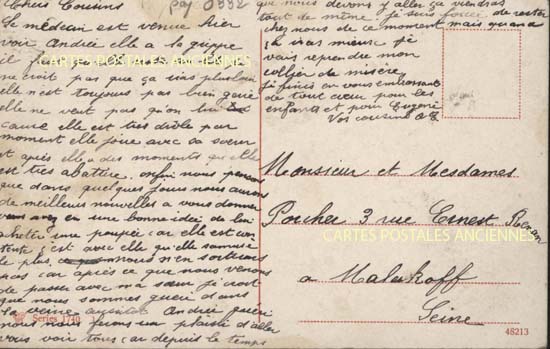 Chers Cousins
Le médecin est venue hier
voir Andrée elle a la grippe
il
ne croit pas que ça ira plus loin
elle n'est toujours pas bien gaie
elle ne veut pas qu'on lui
cause elle est très drôle par
moment elle joue avec sa soeur
et après elle a des moments qu'elle
est très abattue. enfin nous pensons
que dans quelques jours nous aurons
de meilleurs nouvelles a vous donner
vous avez eu une bonne idée de lui
acheter une poupée car elle est con
tente c'est avec elle qu'elle s'amuse
le plus. nous n'en sortirons
pas car après ce que nous venons
de passer avec ma sœur je crois
que nous sommes guère dans
la veine Andrée guéri
nous nous ferons un plaisir d'aller
vous voir tous car depuis le temps
que nous devons y aller ça viendras
tout de même. Je suis de rester
chez nous de ce moment mais quand
ça iras mieux je
vais reprendre mon
collier de misère
je finis en vous embrassant
de tout cœur pour les
enfants et pour Eugene
Vos cousins
Monsieur et Mesdames
Porcher 3 rue Ernest Renan
a Malakoff
Seine
CARTES POSTALES ANCIENNES
CARTES POSTALES ANCIENNES
Series 1740
48213